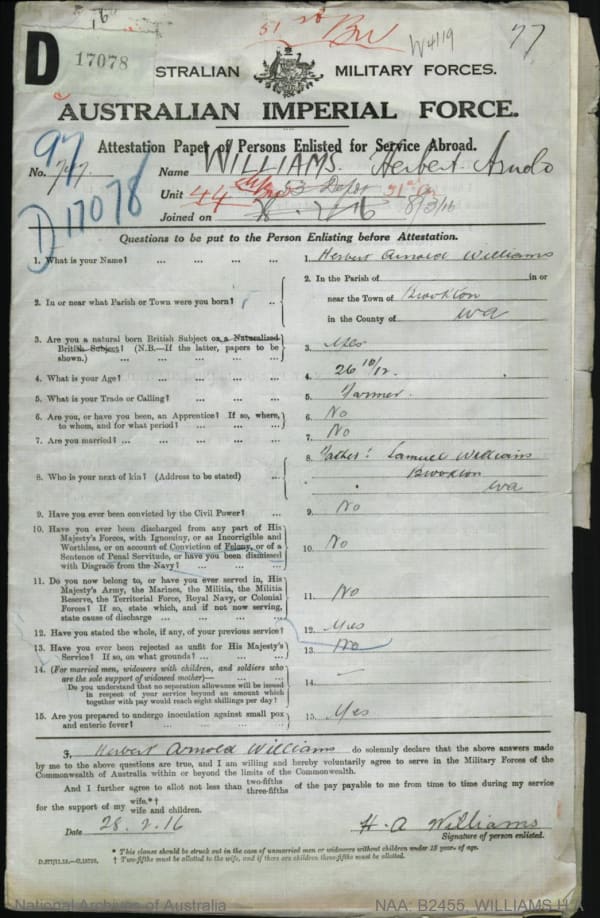 51st Bn W4119 77
D 17078
STRALIAN MILITARY FORCES.
AUSTRALIAN IMPERIAL FORCE.
Attestation Paper of Persons Enlisted for Service Abroad.
97
D 17078
No. 747. Name WILLIAMS. Herbert Arnold
Unit 44 53 Depot 51st Bn
Joined on 28. 2. 16 8/3/16
Questions to be put to the Person Enlisting before Attestation.
1. What is your Name? ... ... ... ... 1. Herbert Arnold Williams
2. In or near what Parish or Town were you born? .. 2. In the Parish of in or
near the Town of Brookton
in the County of WA
3. Are you a natural born British Subject or a Naturalized
British Subject? (N.B.—If the latter, papers to be
shown.) ... ... ... ... 3. Yes
4. What is your Age? ... ... ... ... 4. 26 10/12.
5. What is your Trade or Calling? ... ... ... 5. Farmer.
6. Are you, or have you been, an Apprentice? If so, where,
to whom, and for what period? ... ... ... 6. No
7. Are you married? ... ... ... ... ... 7. No
8. Who is your next of kin? (Address to be stated) ... 8. Father: Samuel Williams
Brookton
WA
9. Have you ever been convicted by the Civil Power? ... 9. No
10. Have you ever been discharged from any part of His
Majesty's Forces, with Ignominy, or as Incorrigible and
Worthless, or on account of Conviction of Felony, or of a
Sentence of Penal Servitude, or have you been dismissed
with Disgrace from the Navy? ... ... ... 10. No
11. Do you now belong to, or have you ever served in, His
Majesty's Army, the Marines, the Militia, the Militia
Reserve, the Territorial Force, Royal Navy, or Colonial
Forces? If so, state which, and if not now serving,
state cause of discharge ... ... ... ... 11. No
12. Have you stated the whole, if any, of your previous service? 12. Yes
13. Have you ever been rejected as unfit for His Majesty's
Service? If so, on what grounds? ... ... ... 13. No
14. (For married men, widowers with children, and soldiers who
are the sole support of widowed mother)—
Do you understand that no separation allowance will be issued
in respect of your service beyond an amount which
together with pay would reach eight shillings per day? 14. —
15. Are you prepared to undergo inoculation against small pox
and enteric fever? ... ... ... ... 15. Yes
I, Herbert Arnold Williams do solemnly declare that the above answers made
by me to the above questions are true, and I am willing and hereby voluntarily agree to serve in the Military Forces of the
Commonwealth of Australia within or beyond the limits of the Commonwealth.
And I further agree to allot not less than two-fifths three-fifths of the pay payable to me from time to time during my service
for the support of my wife.*† wife and children.
Date 28. 2. 16 H. A Williams
Signature of person enlisted.
* This clause should be struck out in the case of unmarried men or widowers without children under 18 years of age.
† Two-fifths must be allotted to the wife, and if there are children three-fifths must be allotted.
National Archives of Australia NAA: B2455, WILLIAMS H A